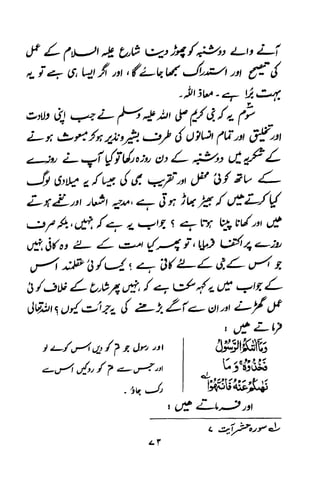 آنے والے دوشنبہ کو چھوڑ دینا شارع علیہ السلام کے عمل
کی تصحیح اور استدراک سمجھا جائے گا، اور اگر ایسا ہی ہے تو یہ
بہت بُرا ہے ۔ معاذ اللہ۔
سوّم یہ کہ نبی کریم صلی اللہ علیہ وسلم نے جب اپنی ولادت
وتخلیق اور تمام انسانوں کی طرف بشیر ونذیر ہوکر مبعوث ہونے
کے شکریہ میں دوشنبہ کے دن روزہ رکھا تو کیا آپ نے روزے
کے ساتھ کوئی محفل اور تقریب بھی کی جیسا کہ یہ میلادی لوگ
کیا کرتے ہیں کہ بھیڑ بھاڑ ہوتی ہے، مدحیہ اشعار اور نغمے ہوتے
ہیں اور کھانا پینا ہوتا ہے ؟ جواب یہ ہے کہ نہیں، بلکہ صرف
روزے پر اکتفا فرمایا ، تو پھر کیا امت کے لئے وہ کافی نہیں
جو اس کے نبی کے لئے کافی ہے ؟ کیا کوئی عقلمند اس
کے جواب میں یہ کہہ سکتا ہے کہ نہیں پھر شارع کے خلاف کوئی
عمل گھڑنے اور ان سے آگے بڑھنے کی یہ جرأت کیوں؟ اللہ تعالیٰ
فرماتے ہیں :
وَمَا اٰتٰىكُمُ الرَّسُوْلُ اور رسول جو تم کو دیں اس کو لے لو
فَخُذُوْهُ وَمَا اور جس سے تم کو روکیں اس سے
نَهٰىكُمْ عَنْهُ فَانْتَهُوْا لہ رک جاؤ ۔
اور فرماتے ہیں :
لہ سورہ حشر آیت ۷
۷۳